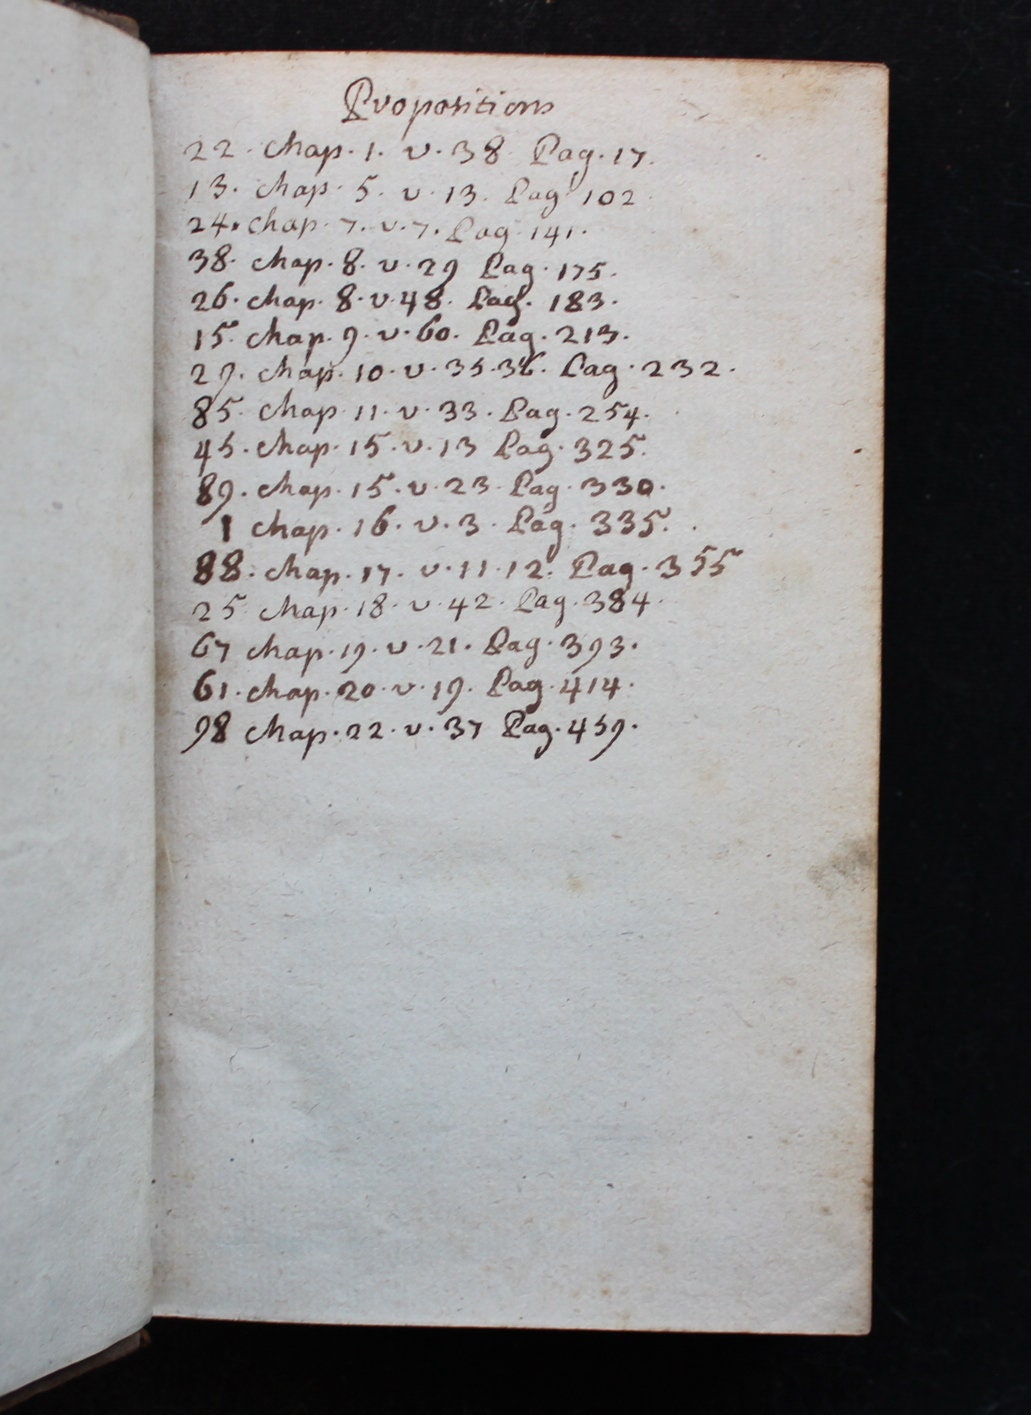 Propositions
22. chap. 1. v. 38 Pag. 17.
13. chap. 5. v. 13. Pag 102
24. chap. 7. v. 7. Pag. 141.
38. chap. 8. v. 29 Pag. 175.
26. chap. 8. v. 48. Pag. 183.
15. chap. 9. v. 60. Pag. 213.
29. chap. 10. v. 35. 36. Pag. 232.
85. chap 11. v. 33. Pag. 254.
45. chap. 15. v. 13 Pag. 325.
89. chap. 15. v. 23. Pag. 330.
1 chap. 16. v. 3. Pag. 335.
88. chap. 17. v. 11. 12. Pag. 355
25 chap. 18. v. 42. Pag. 384.
67 chap. 19. v. 21. Pag. 393.
61. chap. 20. v. 19. Pag. 414.
98 chap. 22. v. 37 Pag. 459.